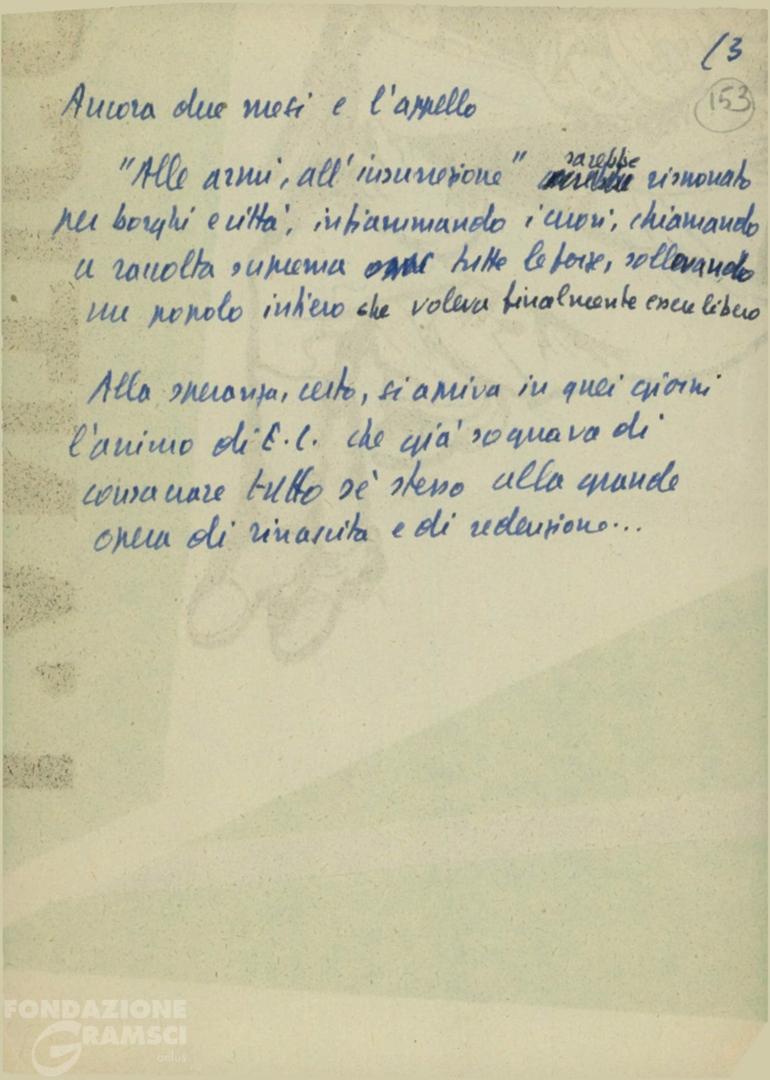 (3
153
Ancora due mesi e l'appello
"Alle armi, all'insurrezione" sarebbe risuonato
per borghi e città, infiammando i cuori, chiamando
a raccolta suprema tutte le forze, sollevando
un popolo intiero che voleva finalmente essere libero
Alla speranza, certo, si apriva in quei giorni
l'animo di E.C. che già sognava di
consacrare tutto sé stesso alla grande
opera di rinascita e di redenzione...
FONDAZIONE
GRAMSCI